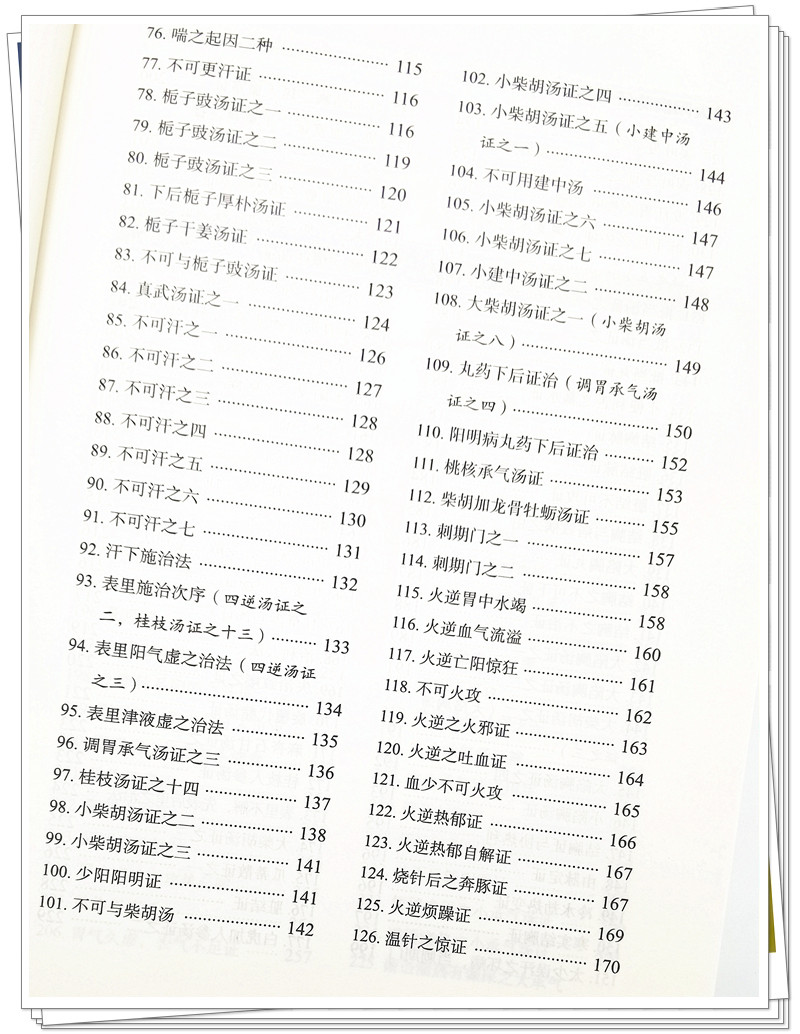 76. 喘之起因二种 …… 115
77. 不可更汗证 …… 116
78. 栀子豉汤证之一 …… 116
79. 栀子豉汤证之二 …… 119
80. 栀子豉汤证之三 …… 120
81. 下后栀子厚朴汤证 …… 121
82. 栀子干姜汤证 …… 122
83. 不可与栀子豉汤证 …… 123
84. 真武汤证之一 …… 124
85. 不可汗之一 …… 126
86. 不可汗之二 …… 127
87. 不可汗之三 …… 128
88. 不可汗之四 …… 128
89. 不可汗之五 …… 129
90. 不可汗之六 …… 130
91. 不可汗之七 …… 131
92. 汗下施治法 …… 132
93. 表里施治次序（四逆汤证之
二，桂枝汤证之十三）…… 133
94. 表里阳气虚之治法（四逆汤证
之三）…… 134
95. 表里津液虚之治法 …… 135
96. 调胃承气汤证之三 …… 136
97. 桂枝汤证之十四 …… 137
98. 小柴胡汤证之二 …… 138
99. 小柴胡汤证之三 …… 141
100. 少阳阳明证 …… 141
101. 不可与柴胡汤 …… 142
102. 小柴胡汤证之四 …… 143
103. 小柴胡汤证之五（小建中汤
证之一）…… 144
104. 不可用建中汤 …… 146
105. 小柴胡汤证之六 …… 147
106. 小柴胡汤证之七 …… 147
107. 小建中汤证之二 …… 148
108. 大柴胡汤证之一（小柴胡汤
证之八）…… 149
109. 丸药下后证治（调胃承气汤
证之四）…… 150
110. 阳明病丸药下后证治 …… 152
111. 桃核承气汤证 …… 153
112. 柴胡加龙骨牡蛎汤证 …… 155
113. 刺期门之一 …… 157
114. 刺期门之二 …… 158
115. 火逆胃中水竭 …… 158
116. 火逆血气流溢 …… 160
117. 火逆亡阳惊狂 …… 161
118. 不可火攻 …… 162
119. 火逆之火邪证 …… 163
120. 火逆之吐血证 …… 164
121. 血少不可火攻 …… 165
122. 火逆热郁证 …… 166
123. 火逆热郁自解证 …… 167
124. 烧针后之奔豚证 …… 167
125. 火逆烦躁证 …… 169
126. 温针之惊证 …… 170